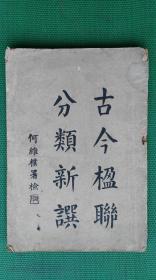 古今楹聯
分類新譔
何維樸署檢